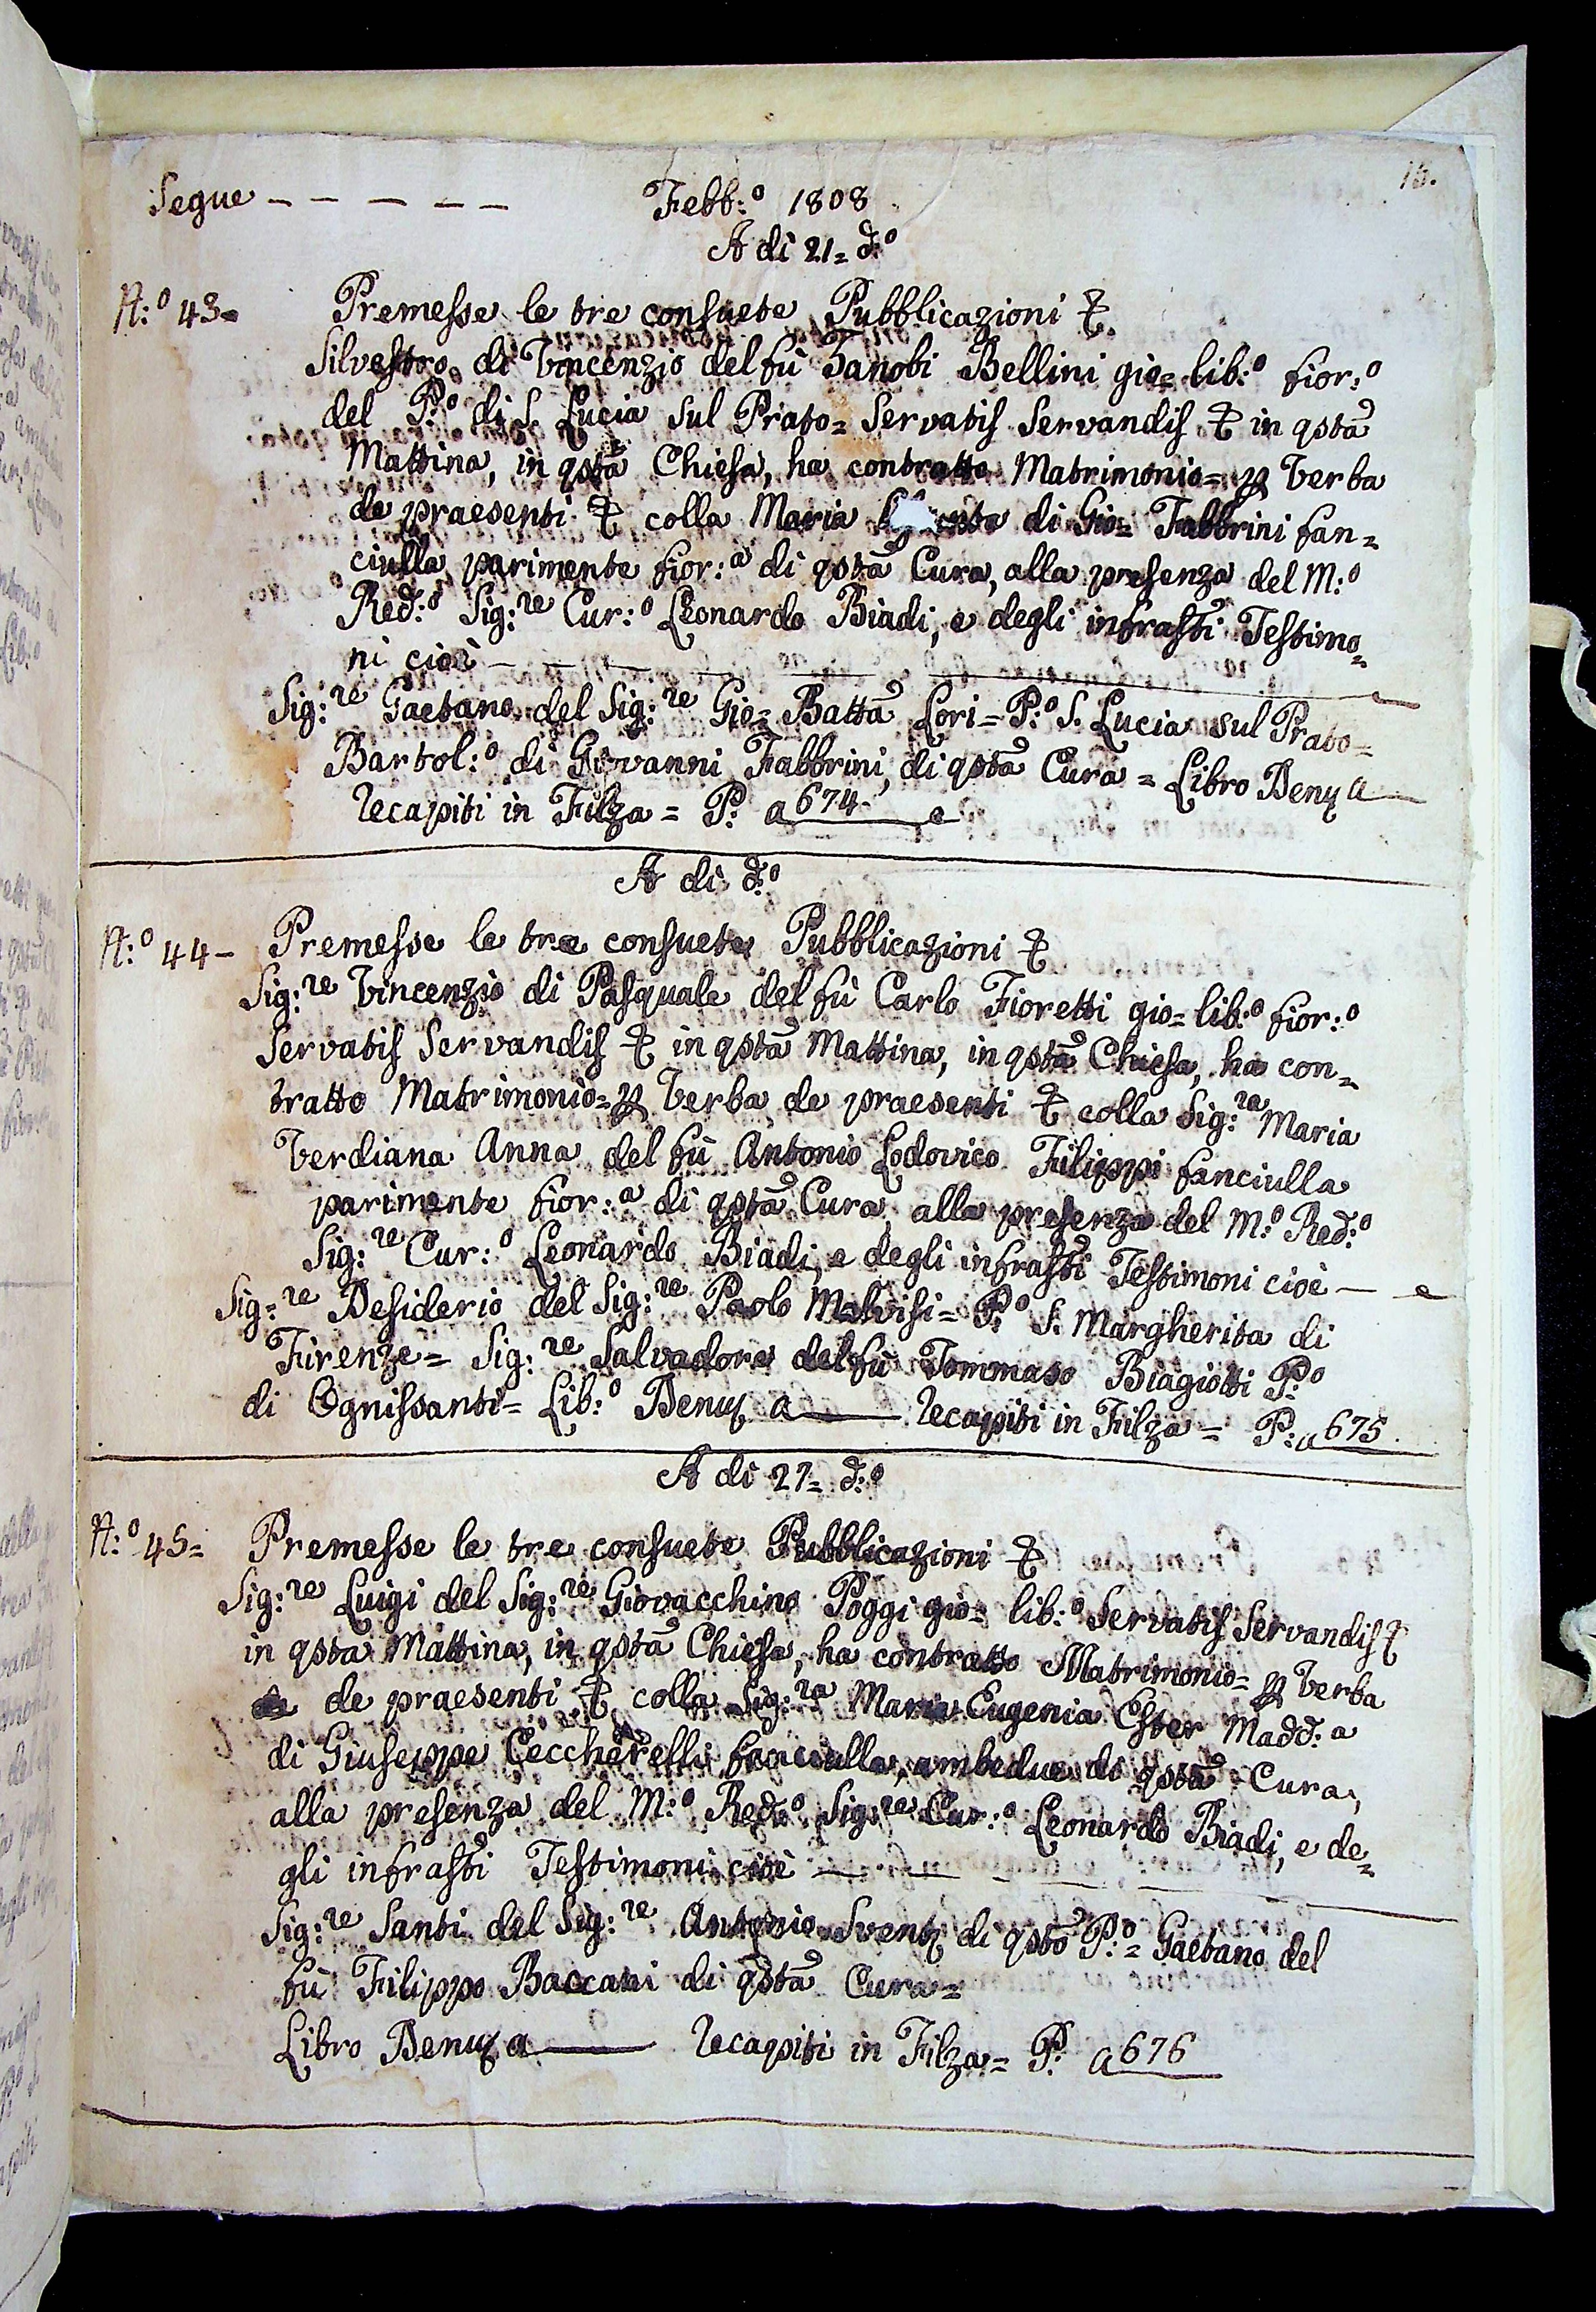 16.
Segue — — — — — Febb:º 1808
A di 21= d:º
N:º 43= Premesse le tre consuete Pubblicazioni &.
Silvestro di Vincenzio del fù Zanobi Bellini gio= lib:º fior:º
del P:º di S. Lucia sul Prato= Servatis Servandis & in qsta
Mattina, in qsta Chiesa, ha contratto Matrimonio= p Verba
de praesenti & colla Maria di Gio= Fabbrini fan=
ciulla parimente fior:a di qsta Cura, alla presenza del M:º
Red:º Sig:re Cur:º Leonardo Biadi, e degli infrasti Testimo=
ni cioè — — —
Sig:re Gaetano del Sig:re Gio= Batta Lori= P:º S. Lucia sul Prato=
Bartol:º di Giovanni Fabbrini, di qsta Cura= Libro Denuz a —
Recapiti in Filza= P: a 674-
A di d:º
N:º 44- Premesse le tre consuete Pubblicazioni &
Sig:re Vincenzio di Pasquale del fù Carlo Fioretti gio= lib:º fior:º
Servatis Servandis & in qsta Mattina, in qsta Chiesa, ha con=
tratto Matrimonio= p Verba de praesenti & colla Sig:ra Maria
Verdiana Anna del fù Antonio Lodovico Filippi fanciulla
parimente fior:a di qsta Cura alla presenza del M:º Red:º
Sig:re Cur:º Leonardo Biadi, e degli infrasti Testimoni cioè —
Sig=re Desiderio del Sig:re Paolo Malvisi= P:º S. Margherita di
Firenze= Sig:re Salvadore del fù Tommaso Biagiotti P:º
di Ognissanti= Lib:º Denuz a — Recapiti in Filza= P: a 675
A di 27= d:º
N:º 45= Premesse le tre consuete Pubblicazioni &
Sig:re Luigi del Sig:re Giovacchino Poggi gio= lib:º Servatis Servandis &
in qsta Mattina, in qsta Chiesa, ha contratto Matrimonio= p Verba
de praesenti & colla Sig:ra Maria Eugenia Ester Madd:a
di Giuseppe Ceccherelli fanciulla, ambedue di qsta Cura,
alla presenza del M:º Red:º Sig:re Cur:º Leonardo Biadi, e de=
gli infrasti Testimoni cioè — — —
Sig:re Santi del Sig:re Antonio Sventz di qsto P:º= Gaetano del
fù Filippo Baccani di qsta Cura=
Libro Denuz a — Recapiti in Filza= P: a 676